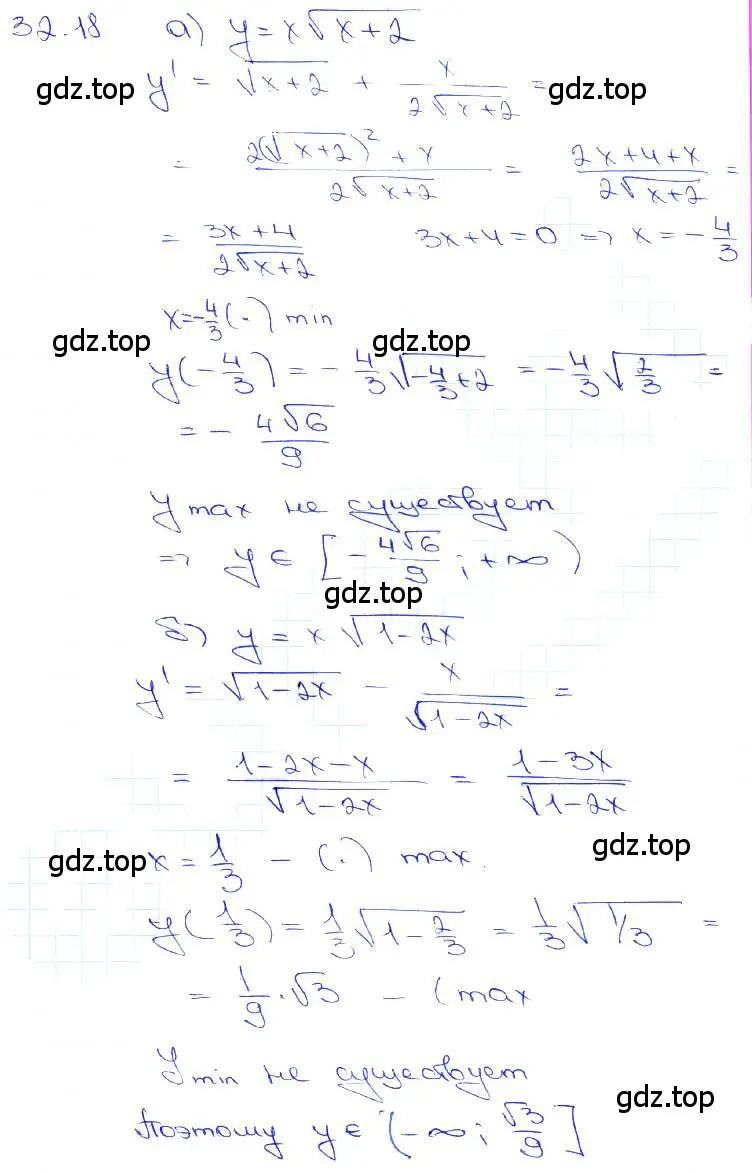 32.18 а) y = x√(x+2)
gdz.top y' = √(x+2) + x/(2√(x+2)) = gdz.top
= (2(√(x+2))² + x)/(2√(x+2)) = (2x+4+x)/(2√(x+2)) =
= (3x+4)/(2√(x+2)) 3x+4=0 => x = -4/3
x=-4/3 (·) min
gdz.top gdz.top
y(-4/3) = -4/3 √(-4/3+2) = -4/3 √(2/3) =
= - 4√6/9
y max не существует
=> y ∈ [-4√6/9 ; +∞)
gdz.top
б) y = x √(1-2x)
y' = √(1-2x) - x/√(1-2x) =
= (1-2x-x)/√(1-2x) = (1-3x)/√(1-2x)
gdz.top x = 1/3 - (·) max. gdz.top
y(1/3) = 1/3 √(1-2/3) = 1/3 √(1/3) =
= 1/9 · √3 - (max
y min не существует
Поэтому y ∈ (-∞; √3/9] gdz.top